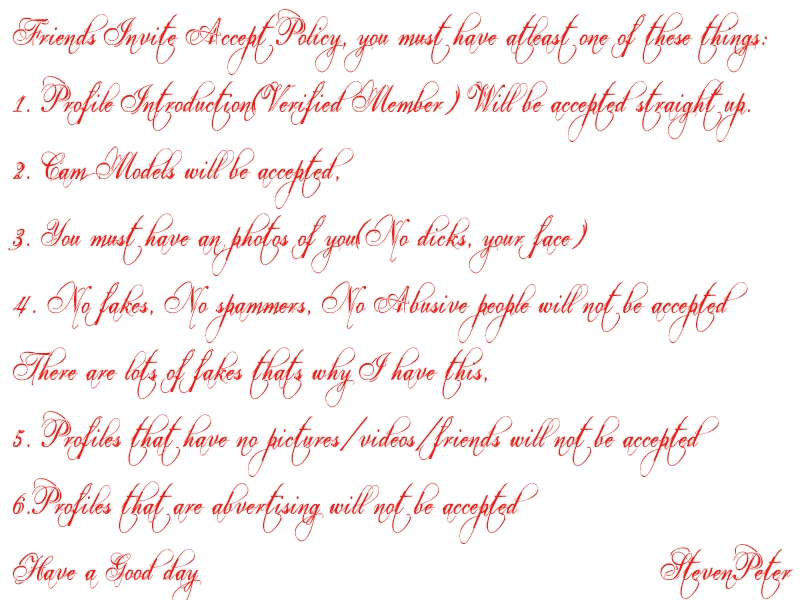 Friends Invite Accept Policy, you must have atleast one of these things:
1. Profile Introduction(Verified Member) Will be accepted straight up.
2. Cam Models will be accepted,
3. You must have an photos of you(No dicks, your face)
4. No fakes, No spammers, No Abusive people will not be accepted
There are lots of fakes thats why I have this,
5. Profiles that have no pictures/videos/friends will not be accepted
6.Profiles that are abvertising will not be accepted
Have a Good day
StevenPeter